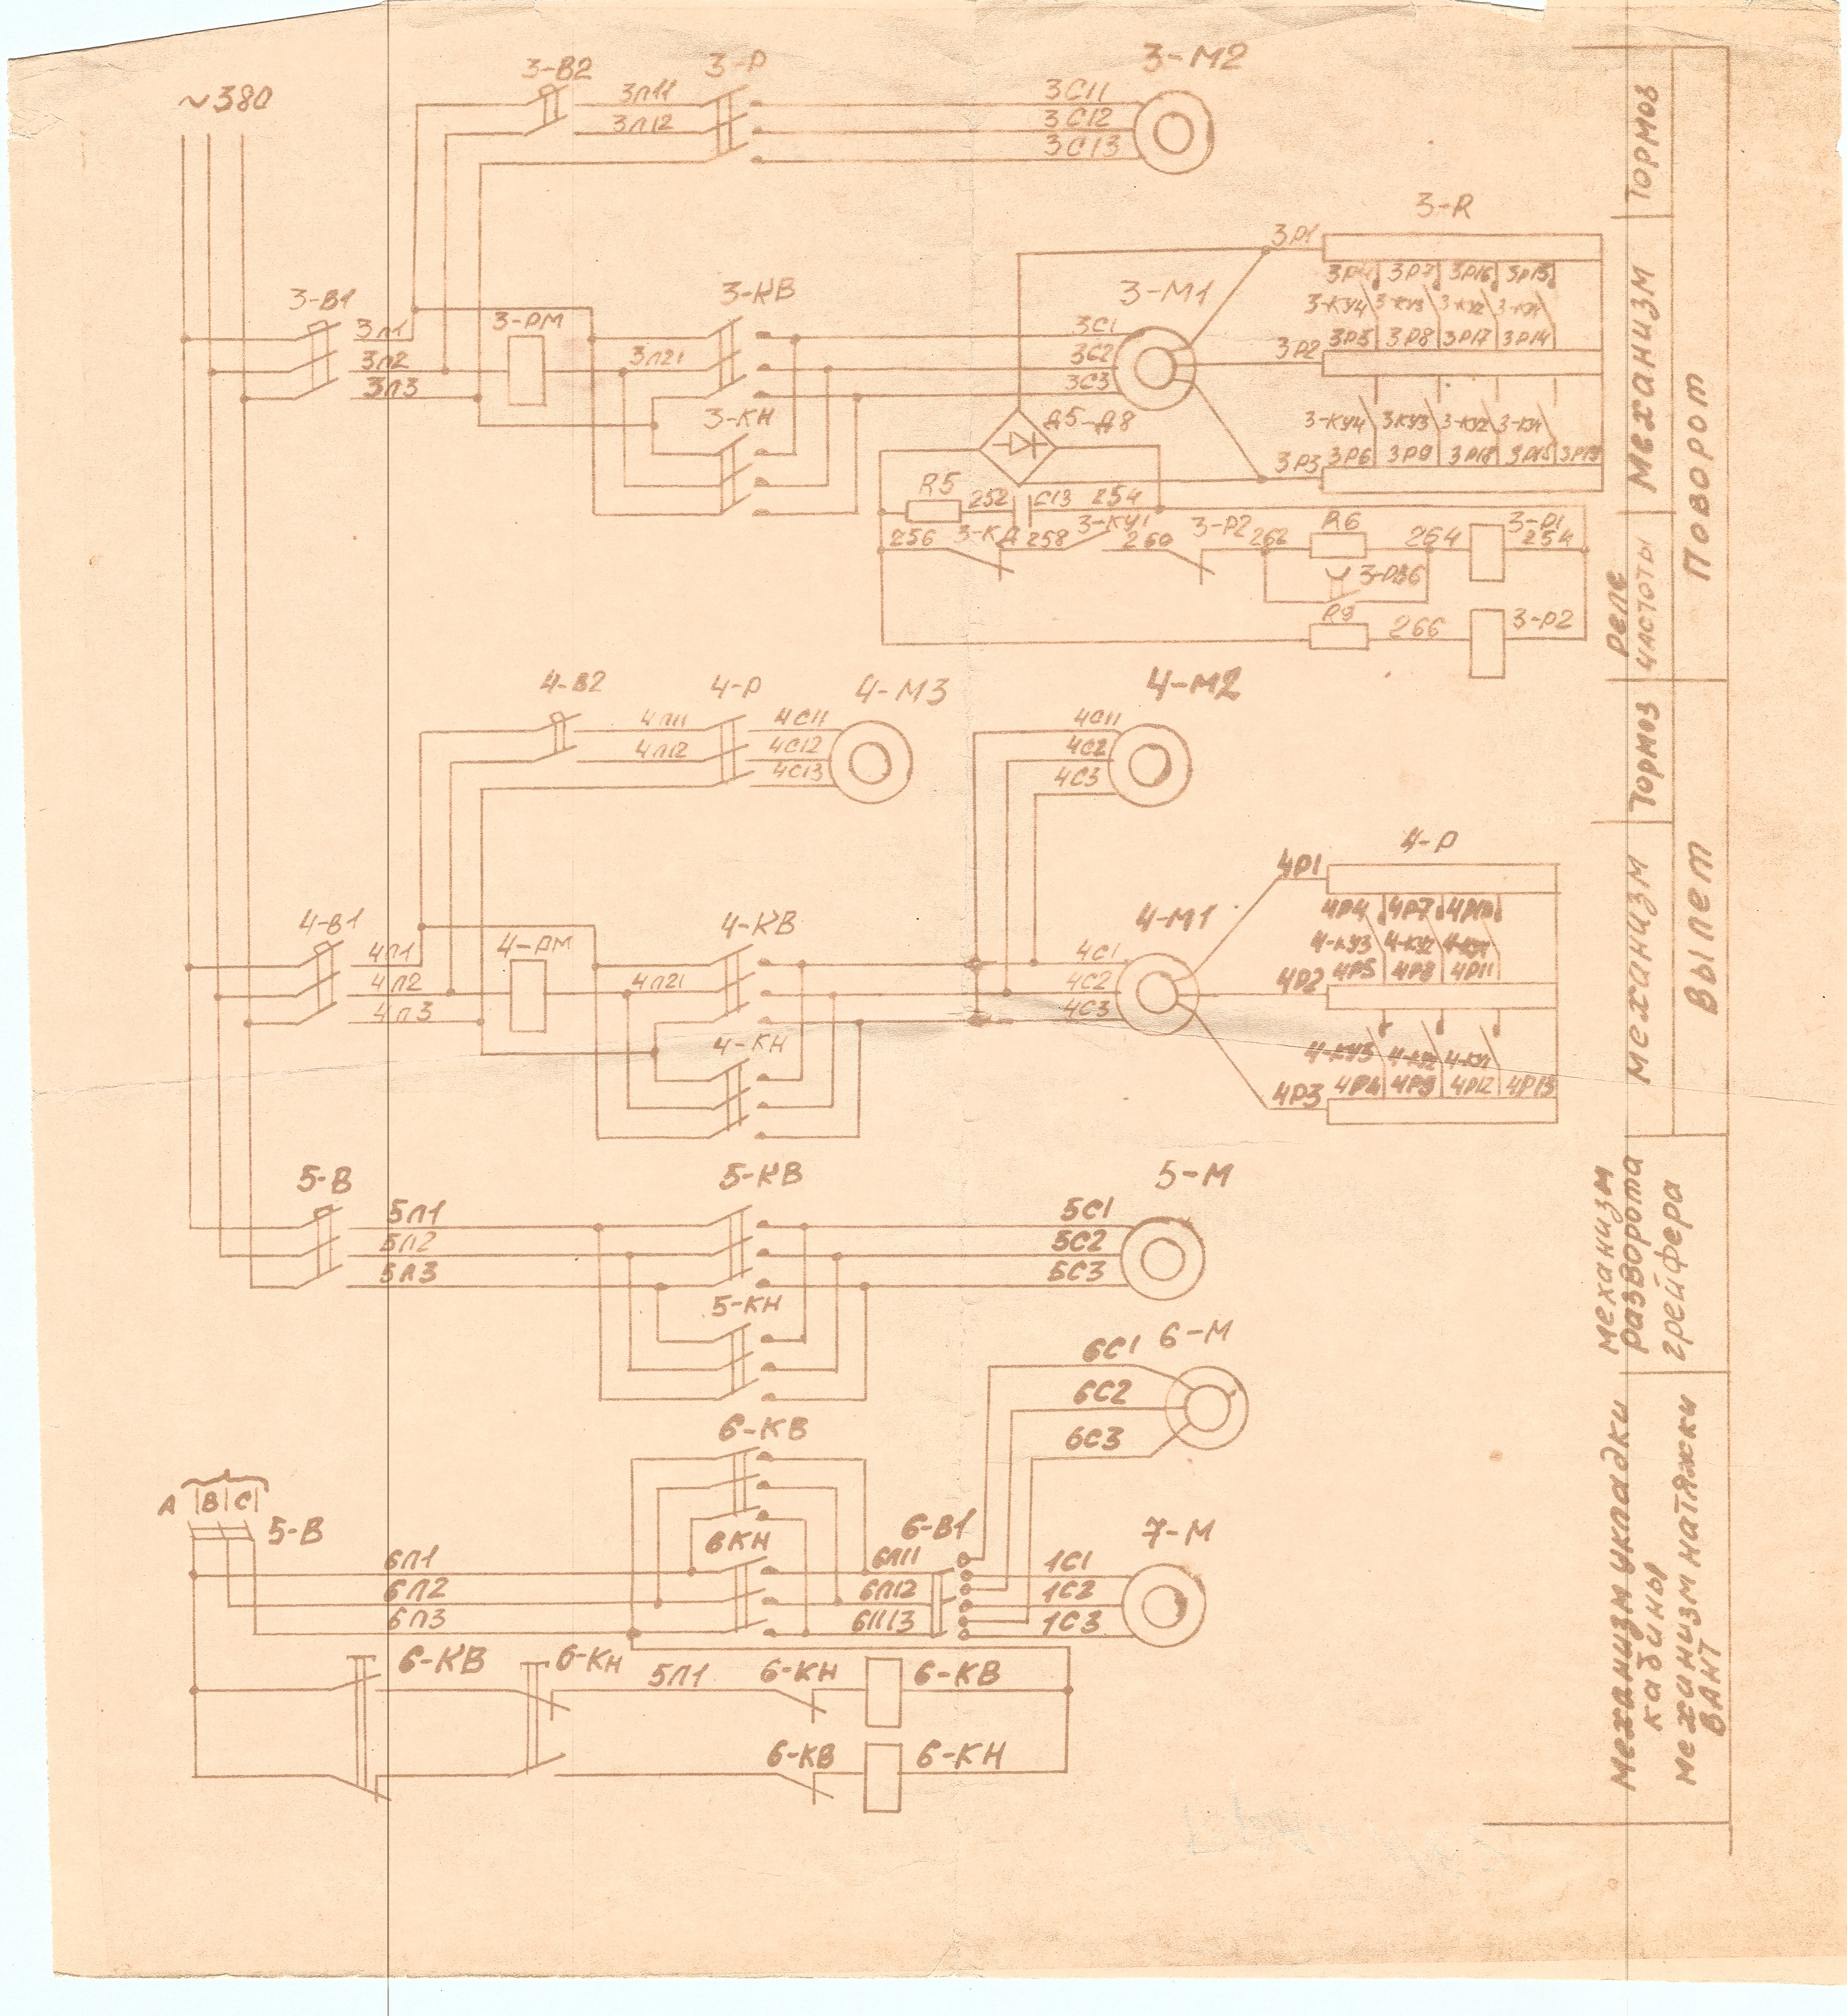 ~380
3-В2
3-Р
3-М2
3П11
3П12
3С11
3С12
3С13
3-R
3Р1
3Р4 3Р7 3Р16 3Р13
3-КУ4 3-КУ3 3-КУ2 3-КУ1
3Р5 3Р8 3Р17 3Р14
3-В1
3П1
3П2
3П3
3-РМ
3П21
3-КВ
3-КН
3-М1
3С1
3С2
3С3
3Р2
3-КУ4 3-КУ3 3-КУ2 3-КУ1
3Р6 3Р9 3Р18 3Р15 3Р19
3Р3
Д5-Д8
R5 252 С13 254
256 3-КД 258 3-КУ1 260 3-Р2 262 R6 264 3-Р1 254
3-РВ6
R9 266 3-Р2
4-В2
4-Р
4-М3
4-М2
4П11
4П12
4С11
4С12
4С13
4С11
4С2
4С3
4-В1
4П1
4П2
4П3
4-РМ
4П21
4-КВ
4-КН
4-М1
4С1
4С2
4С3
4-Р
4Р1
4Р4 4Р7 4Р10
4-КУ3 4-КУ2 4-КУ1
4Р2 4Р5 4Р8 4Р11
4-КУ3 4-КУ2 4-КУ1
4Р3 4Р4 4Р9 4Р12 4Р13
5-В
5П1
5П2
5П3
5-КВ
5-КН
5-М
5С1
5С2
5С3
6-М
6С1
6С2
6С3
6-КВ
6КН
А В С
5-В
6П1
6П2
6П3
6-В1
6П11
6П12
6П13
7-М
1С1
1С2
1С3
6-КВ 6-КН 5П1 6-КН 6-КВ
6-КВ 6-КН
Тормоз
Механизм
Реле
частоты
Поворот
Тормоз
механизм
Вылет
механизм
разворота
грейфера
механизм укладки
кабины
механизм натяжки
ВАНТ